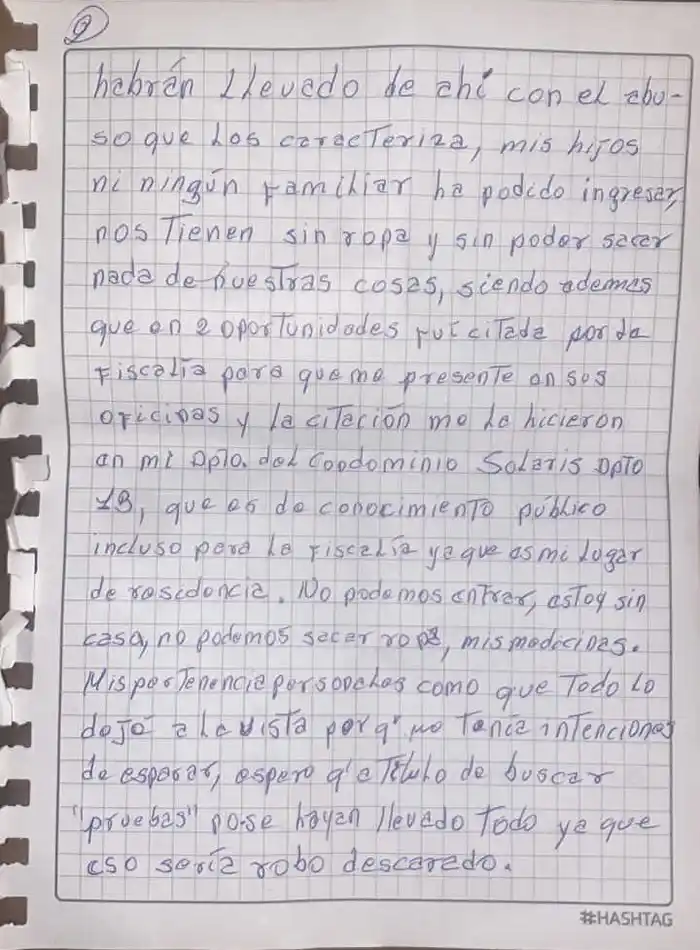 2
habrán llevado de ahí con el abu-
so que los caracteriza, mis hijos
ni ningún familiar ha podido ingresar,
nos tienen sin ropa y sin poder sacar
nada de nuestras cosas, siendo ademas
que en 2 oportunidades fui citada por la
Fiscalía para que me presente en sus
oficinas y la citación me la hicieron
en mi Dpto. del Condominio Solaris Dpto
1B, que es de conocimiento público
incluso para la Fiscalía ya que es mi lugar
de residencia. No podemos entrar, estoy sin
casa, no podemos sacar ropa, mis medicinas.
Mis pertenencia personales como que todo lo
dejó a la vista por q' no tenía intenciones
de esperar, espero q' a título de buscar
"pruebas" no se hayan llevado todo ya que
eso sería robo descarado.
#HASHTAG